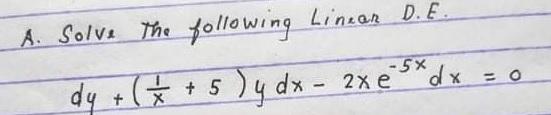 A. Solve The following Linear D.E.
dy + (1/x + 5) y dx - 2xe^-5x dx = 0